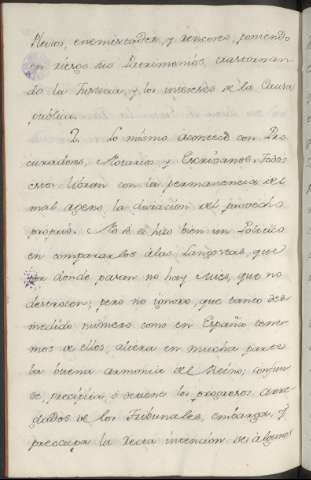 Pleitos, enemistades, y rencores, poniendo
en riesgo sus Patrimonios, cuestionan
do la Justicia, y los intereses de la Causa
publica.
2. Lo mismo acontece con Pro
curadores, Notarios y Escribanos. Todos
estos libran con la permanencia del
mal ageno, la duracion del provecho
proprio. No se si hizo bien un Politico
en compararlos á las Langostas, que
por donde pasan no hay mies, que no
destrocen; pero no ignoro, que tanto des
medido número como en España tene
mos de ellos, altera en mucha parte
la buena armonia del Reino; confun
de, precipita, ó detiene los progresos arre
glados de los Tribunales, embarga, y
preocupa la recta intencion de algunos